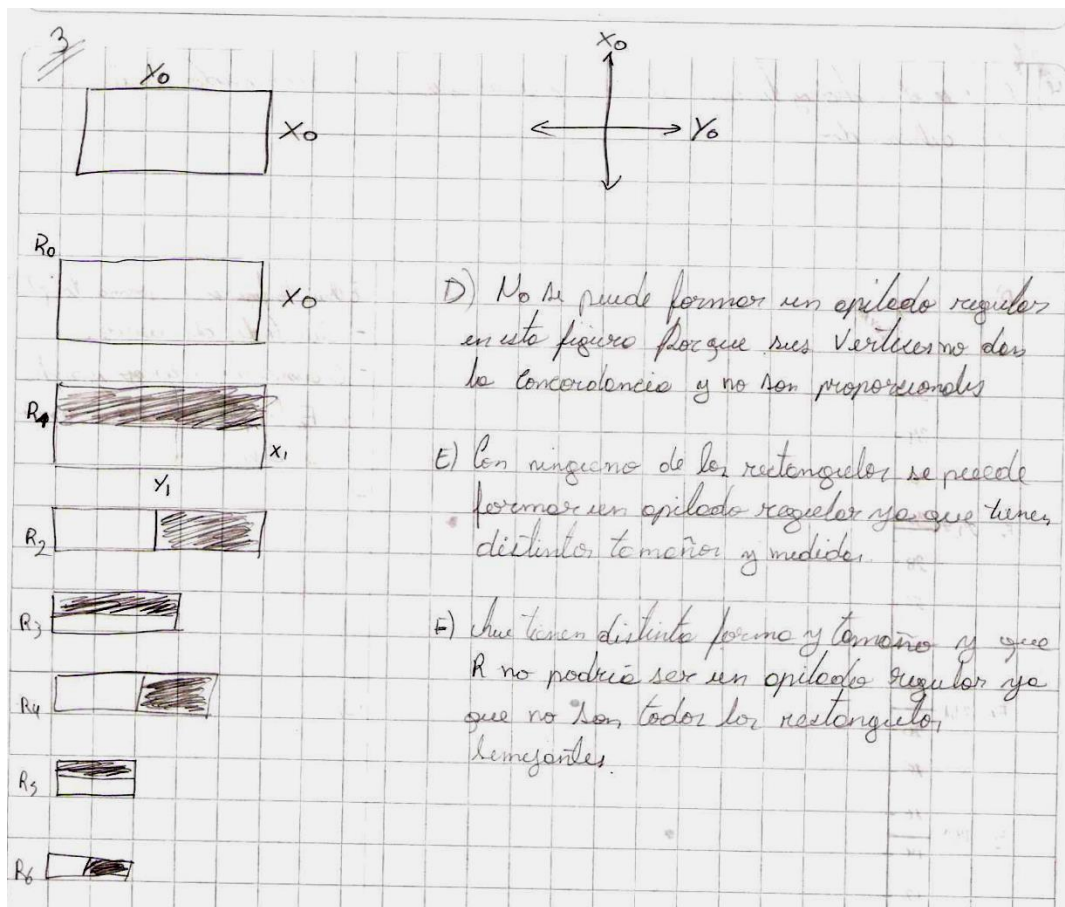 3
Y₀
X₀
X₀
Y₀
R₀
X₀
R₁
X₁
Y₁
R₂
R₃
R₄
R₅
R₆
D) No se puede formar un apilado regular
en esta figura Porque sus Vertices no dan
la Concordancia y no son proporcionales
E) Con ninguno de los rectangulos se puede
formar un apilado regular ya que tienen
distintos tamaños y medidas.
F) Que tienen distinta forma y tamaño y que
R no podria ser un apilado regular ya
que no son todos los rectangulos
semejantes.